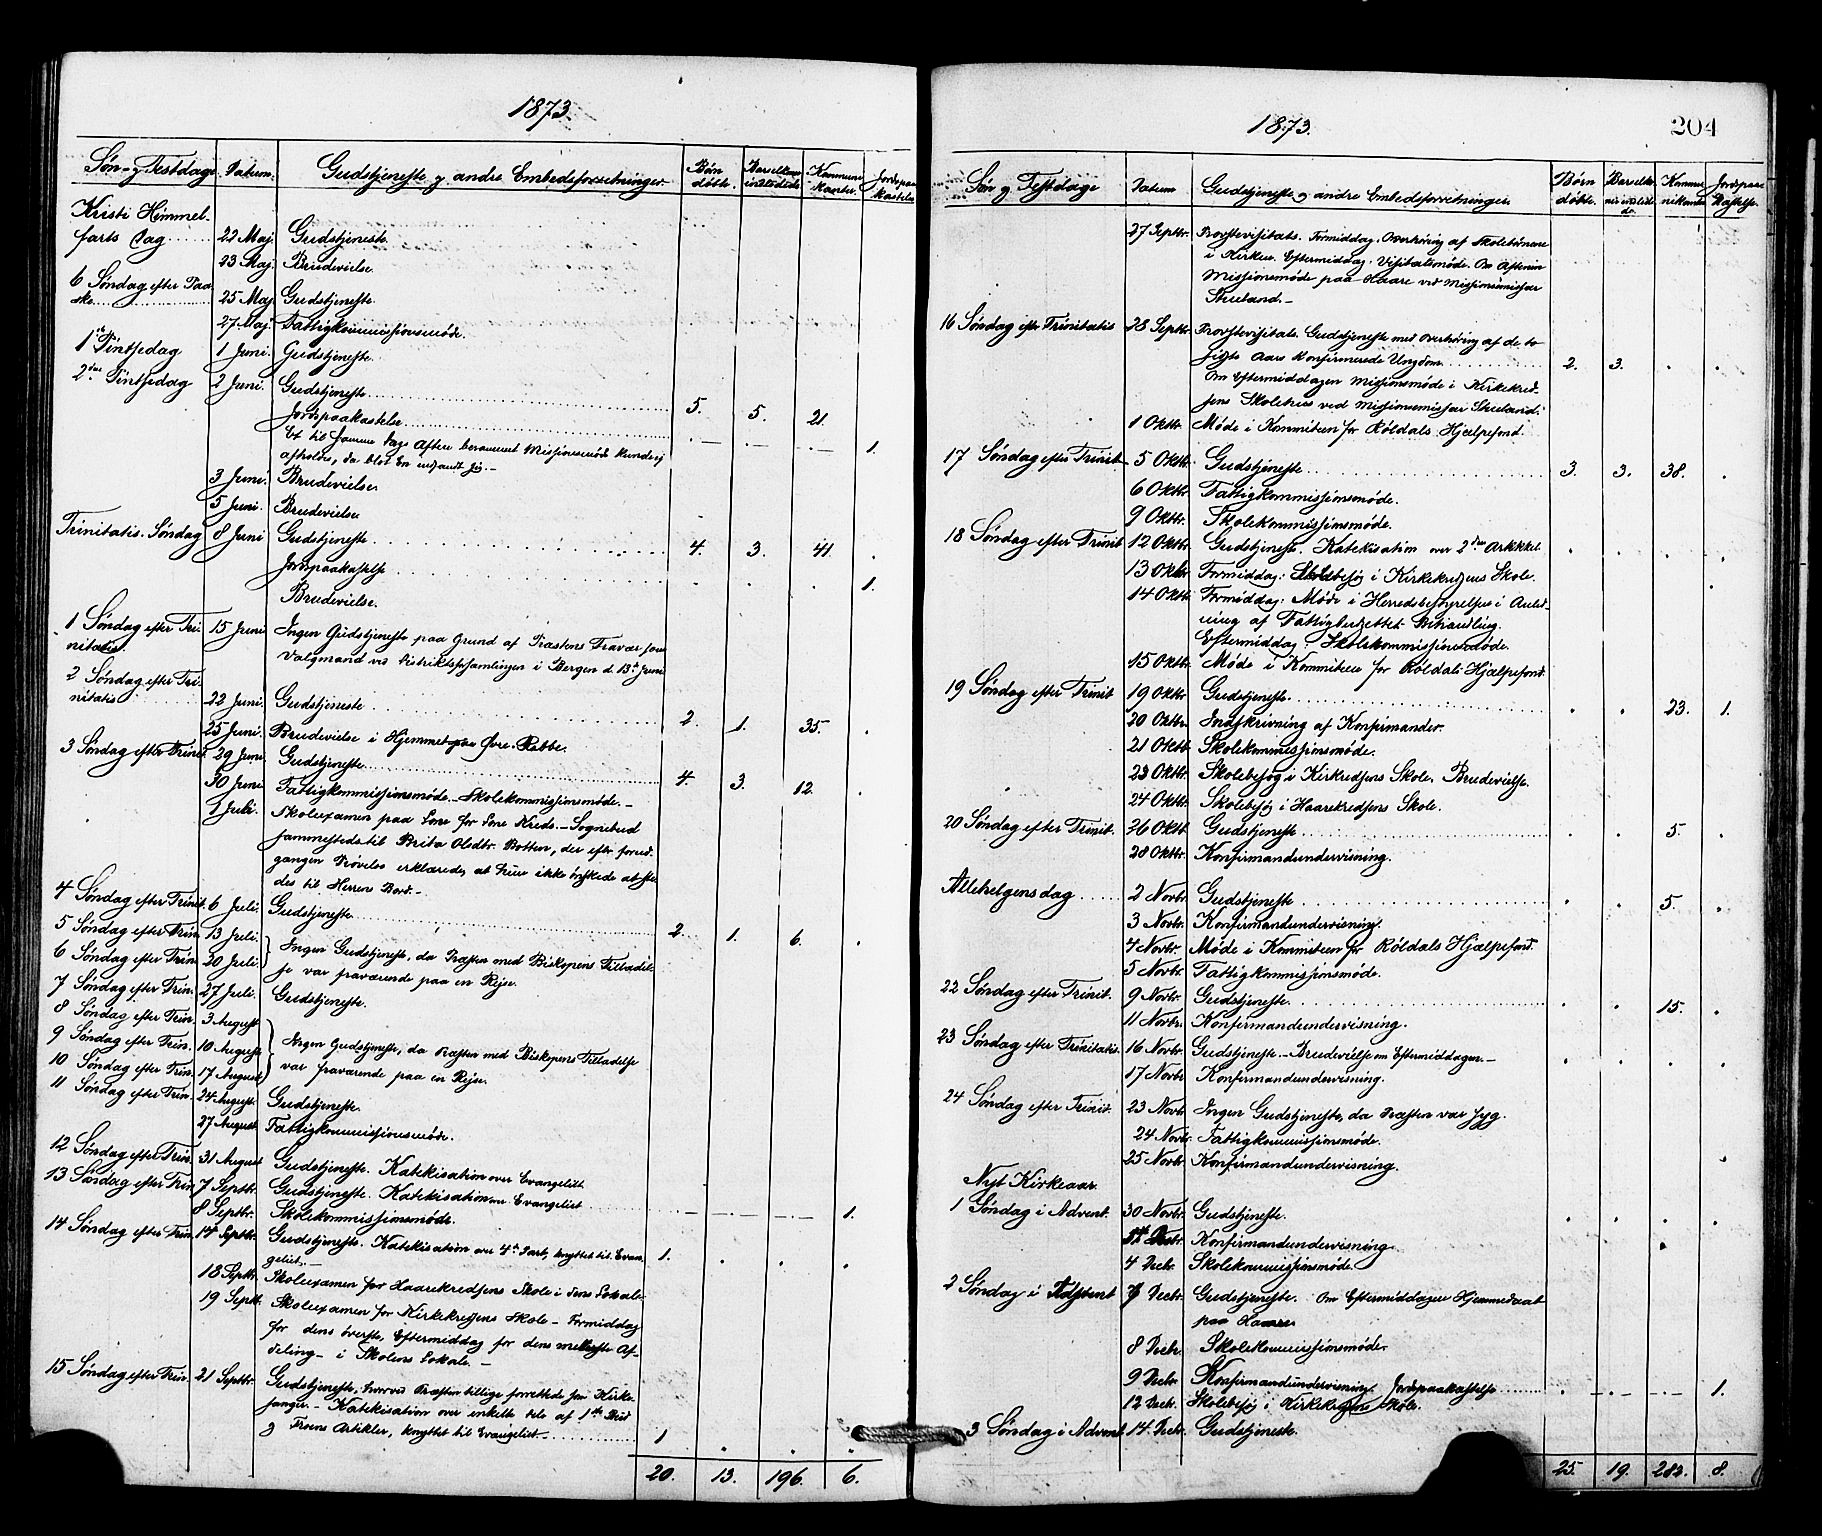 1873.
Søn- og Festdage Datum. Gudstjeneste og andre Embedsforretninger. Børn døbte. Barselkoner indledede Kommunikanter. Jordspaakastelse
Kristi Himmel-
farts Dag 22 Maj. Gudstjeneste.
23 Maj. Brudevielse.
6 Søndag efter Paa-
ske 25 Maj Gudstjeneste
27 Maj. Fattigkommissionsmøde.
1ste Pintsedag 1 Juni. Gudstjeneste.
2den Pintsedag 2 Juni. Gudstjeneste 5. 5. 21.
Jordspaakastelse 1.
Et til samme Dags Aften berammet Missionsmøde kunde ej
afholdes, da blot En indfandt sig.-
3 Juni. Brudevielse.
5 Juni. Brudevielse.
Trinitatis. Søndag 8 Juni Gudstjeneste 4. 3. 41.
Jordspaakastelse 1.
Brudevielse.
1 Søndag efter Tri-
nitatis. 15 Juni Ingen Gudstjeneste paa Grund af Præstens Fravær som
Valgmand ved Distriktsforsamlingen i Bergen d. 13de Juni
2 Søndag efter Tri-
nitatis 22 Juni. Gudstjeneste 2. 1. 35.
25 Juni. Brudevielse i Hjemmet paa Øvre-Rabbe.
3 Søndag efter Trinit. 29 Juni Gudstjeneste 4. 3. 12.
30 Juni Fattigkommissionsmøde.- Skolekommissionsmøde.-
1 Juli. Skoleexamen paa Sone for Sone Kreds.- Sognebud
sammesteds til Brita Olsdtr. Botten, der efter forud-
gangen Prøvelse erklærede, at hun ikke ønskede at ste-
des til Herrens Bord.-
4 Søndag efter Trinit. 6 Juli. Gudstjeneste 2. 1. 6.
5 Søndag efter Trin. 13 Juli. Ingen Gudstjeneste, da Præsten med Biskopens Tilladel-
6 Søndag efter Trin. 20 Juli. se var fraværende paa en Rejse.
7 Søndag efter Trin. 27 Juli. Gudstjeneste.
8 Søndag efter Trin. 3 August
9 Søndag efter Trin. 10 August Ingen Gudstjeneste, da Præsten med Biskopens Tilladelse
10 Søndag efter Trin. 17 August var fraværende paa en Rejse.
11 Søndag efter Trin. 24 August. Gudstjeneste.
27 August Fattigkommissionsmøde.
12 Søndag efter Trin. 31 August Gudstjeneste. Katekisation over Evangeliet.
13 Søndag efter Trin. 7 Septbr. Gudstjeneste. Katekisation over Evangeliet 1.
8 Septbr. Skolekommissionsmøde.
14 Søndag efter Trin. 14 Septbr. Gudstjeneste. Katekisation over 4de Part, knyttet til Evan- 1.
geliet.-
18 Septbr. Skoleexamen for Haarekredsens Skole i dens Lokale
19 Septbr. Skoleexamen for Kirkekredsens Skole- Formiddag
for dens øverste, Eftermiddag for dens mellemste Af-
deling- i Skolens Lokale.-
15 Søndag efter Trin. 21 Septbr. Gudstjeneste, hvorved Præsten tillige forrettede som Kirke-
sanger.- Katekisation over enkelte Dele af 1ste Bud
og Troens Artikler, knyttet til Evangeliet 1
20. 13. 196. 6.
1873. 204
Søn og Festdage Datum Gudstjeneste og andre Embedsforretninger. Børn døbte. Barselkoner indledede. Kommunikanter Jordspaakastelse.
27 Septbr. Provstevisitats. Formiddag. Overhøring af Skolebørnene
i Kirken. Eftermiddag. Visitatsmøde. Om Aftenen
Missionsmøde paa Haare ved Missionsemissær
16 Søndag eftr Trinitatis 28 Septbr Provstevisitats. Gudstjeneste med Overhøring af de to
sidste Aars konfirmerede Ungdom 2. 3.
Om Eftermiddagen Missionsmøde i Kirkekred-
sens Skolehus ved Missionsemissær
1 Oktbr Møde i Kommiteen for Røldals Hjælpefond.
17 Søndag efter Trinit 5 Oktbr. Gudstjeneste 3. 3. 38.
6 Oktbr. Fattigkommissionsmøde.
9 Oktbr. Skolekommissionsmøde.
18 Søndag efter Trinit 12 Oktbr. Gudstjeneste. Katekisation over 2den Artikkel
13 Oktbr. Formiddag: Skolebesøg i Kirkekredsens Skole.
14 Oktbr. Formiddag: Møde i Herredsbestyrelsen i Anled-
ning af Fattigbudgettets Behandling.
Eftermiddag: Skolekommissionsmøde.
15 Oktbr. Møde i Kommiteen for Røldals Hjælpefond.
19 Søndag efter Trinit 19 Oktbr. Gudstjeneste. 23. 1.
20 Oktbr. Indskrivning af Konfirmander.
21 Oktbr. Skolekommissionsmøde.
23 Oktbr. Skolebesøg i Kirkredsens Skole. Brudevielse.
24 Oktbr. Skolebesøg i Haarekredsens Skole.
20 Søndag efter Trinit. 26 Oktbr. Gudstjeneste 5.
28 Oktbr. Konfirmandundervisning.
Allehelgensdag 2 Novbr. Gudstjeneste 5.
3 Novbr. Konfirmandundervisning.
4 Novbr. Møde i Kommiteen for Røldals Hjælpefond.
5 Novbr. Fattigkommissionsmøde.
22 Søndag efter Trinit. 9 Novbr. Gudstjeneste 15.
11 Novbr. Konfirmandundervisning.
23 Søndag efter Trinitatis. 16 Novbr. Gudstjeneste.- Brudevielse om Eftermiddagen.-
17 Novbr Konfirmandundervisning.
24 Søndag efter Trinit. 23 Novbr. Ingen Gudstjeneste, da Præsten var syg.
24 Novbr. Fattigkommissionsmøde.
25 Novbr. Konfirmandundervisning.
Nyt Kirkeaar.
1 Søndag i Advent. 30 Novbr. Gudstjeneste.
Decbr. Konfirmandundervisning.
4 Decbr. Skolekommissionsmøde.
2 Søndag i Advent 7 Decbr. Gudstjeneste. Om Eftermiddagen Hjemmedaab
paa Haare.
8 Decbr. Skolekommissionsmøde.
9 Decbr. Konfirmandundervisning. Jordspaakastelse 1.
12 Decbr. Skolebesøg i Kirkekredsens Skole.
3 Søndag i Advent 14 Decbr. Gudstjeneste.
25. 19. 282. 8.